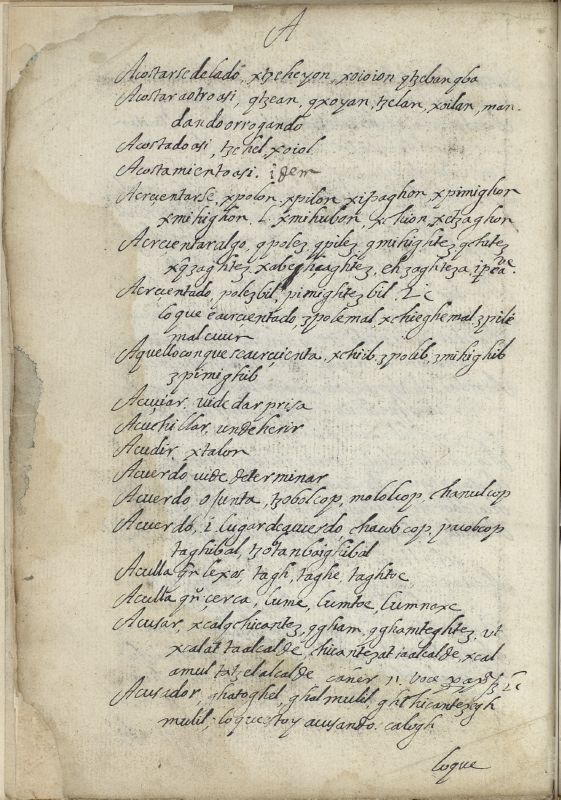 A
Acostarse de lado, xtzeheyon, xoioion qtzebanqba
Acostar a otro asi, qtzean, qxoyan, tzelan, xoilan, man-
dando o rrogando
Acostado asi, tzehel xoiol
Acostamiento asi. idem
Acreçentarse, xpolon, xpilon xipaghon, xpimighon
xmihighon, l. xmihubon, x. huon, xctzaghon
Acreçentar algo, qpolez, qpilez, qmihightez,
Acreçentado, polezbil, pimightezbil
lo que e acreçentado, zpolemal, xchieghemal, zpile
mal
Aquello con que se acreçienta, xchiib, zpolib, zmihighib
zpimighib
Acuçiar, vide dar prisa
Acuchillar, vnde herir
Acudir, xtalon
Acuerdo vide determinar
Acuerdo, o junta, tzobolcop, mololcop, chanulcop
Acuerdo, i. lugar de acuerdo, chawbcop, yacobcop
taghibal, tzotanbaighibal
Aculla lexos, tagh, taghe, taghtoe
Aculla çerca, lume, lumtoe, lumnaxe
Acusar, xcalqchicantez, qgham, qghamteghtez, vt
xcalat ta alcalde, chicantezat ta alcalde, xcal
amul tat, el alcalde
Acusador, ghatoghel, ghalmulil, ghchicantezegh
mulil, lo que estoy acusando. calogh
loque